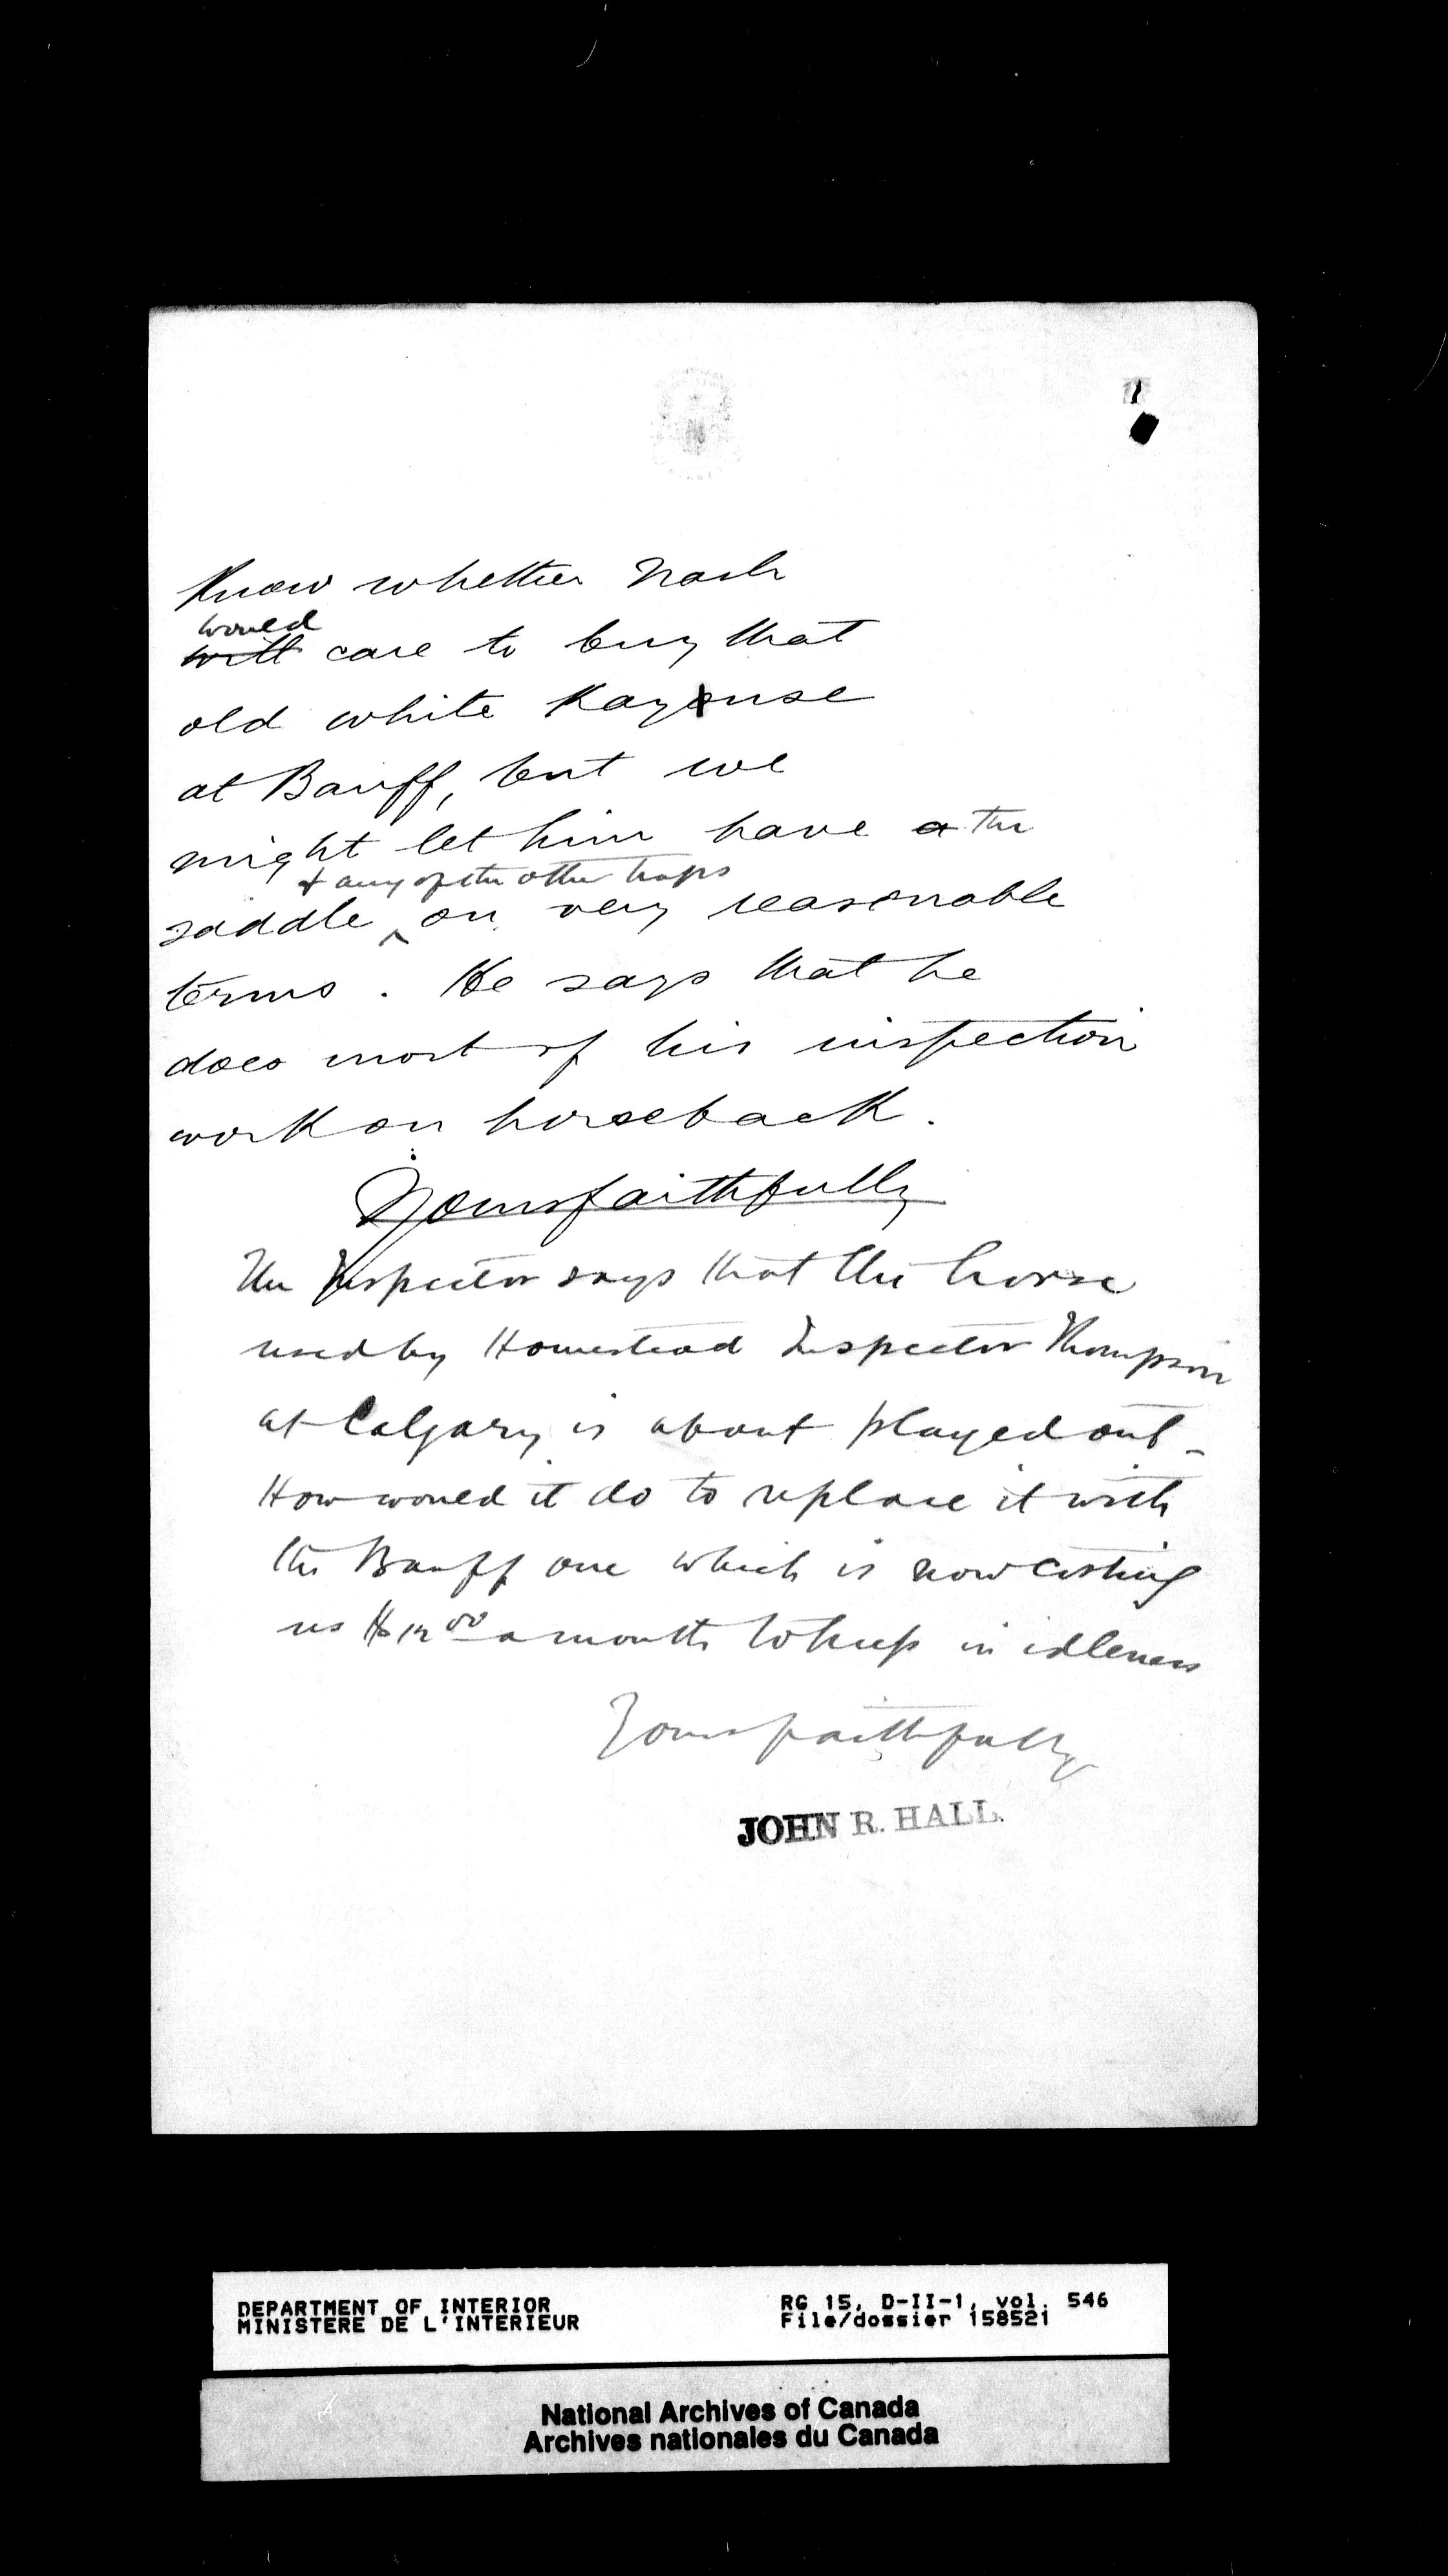 Know whether Nash
would
will care to buy that
old white Kayuse
at Banff, but we
might let him have a the
& any of the other traps
saddle ^ on very reasonable
terms. He says that he
does most of his inspection
work on horseback.
Yours faithfully
The Inspector says that the horse
used by Homestead Inspector Thompson
at Calgary is about played out -
How would it do to replace it with
the Banff one which is now costing
us $12 00 a month to keep in idleness
Yours faithfully
JOHN R. HALL.
DEPARTMENT OF INTERIOR RG 15, D-II-1, vol. 546
MINISTERE DE L'INTERIEUR File/dossier 158521
National Archives of Canada
Archives nationales du Canada